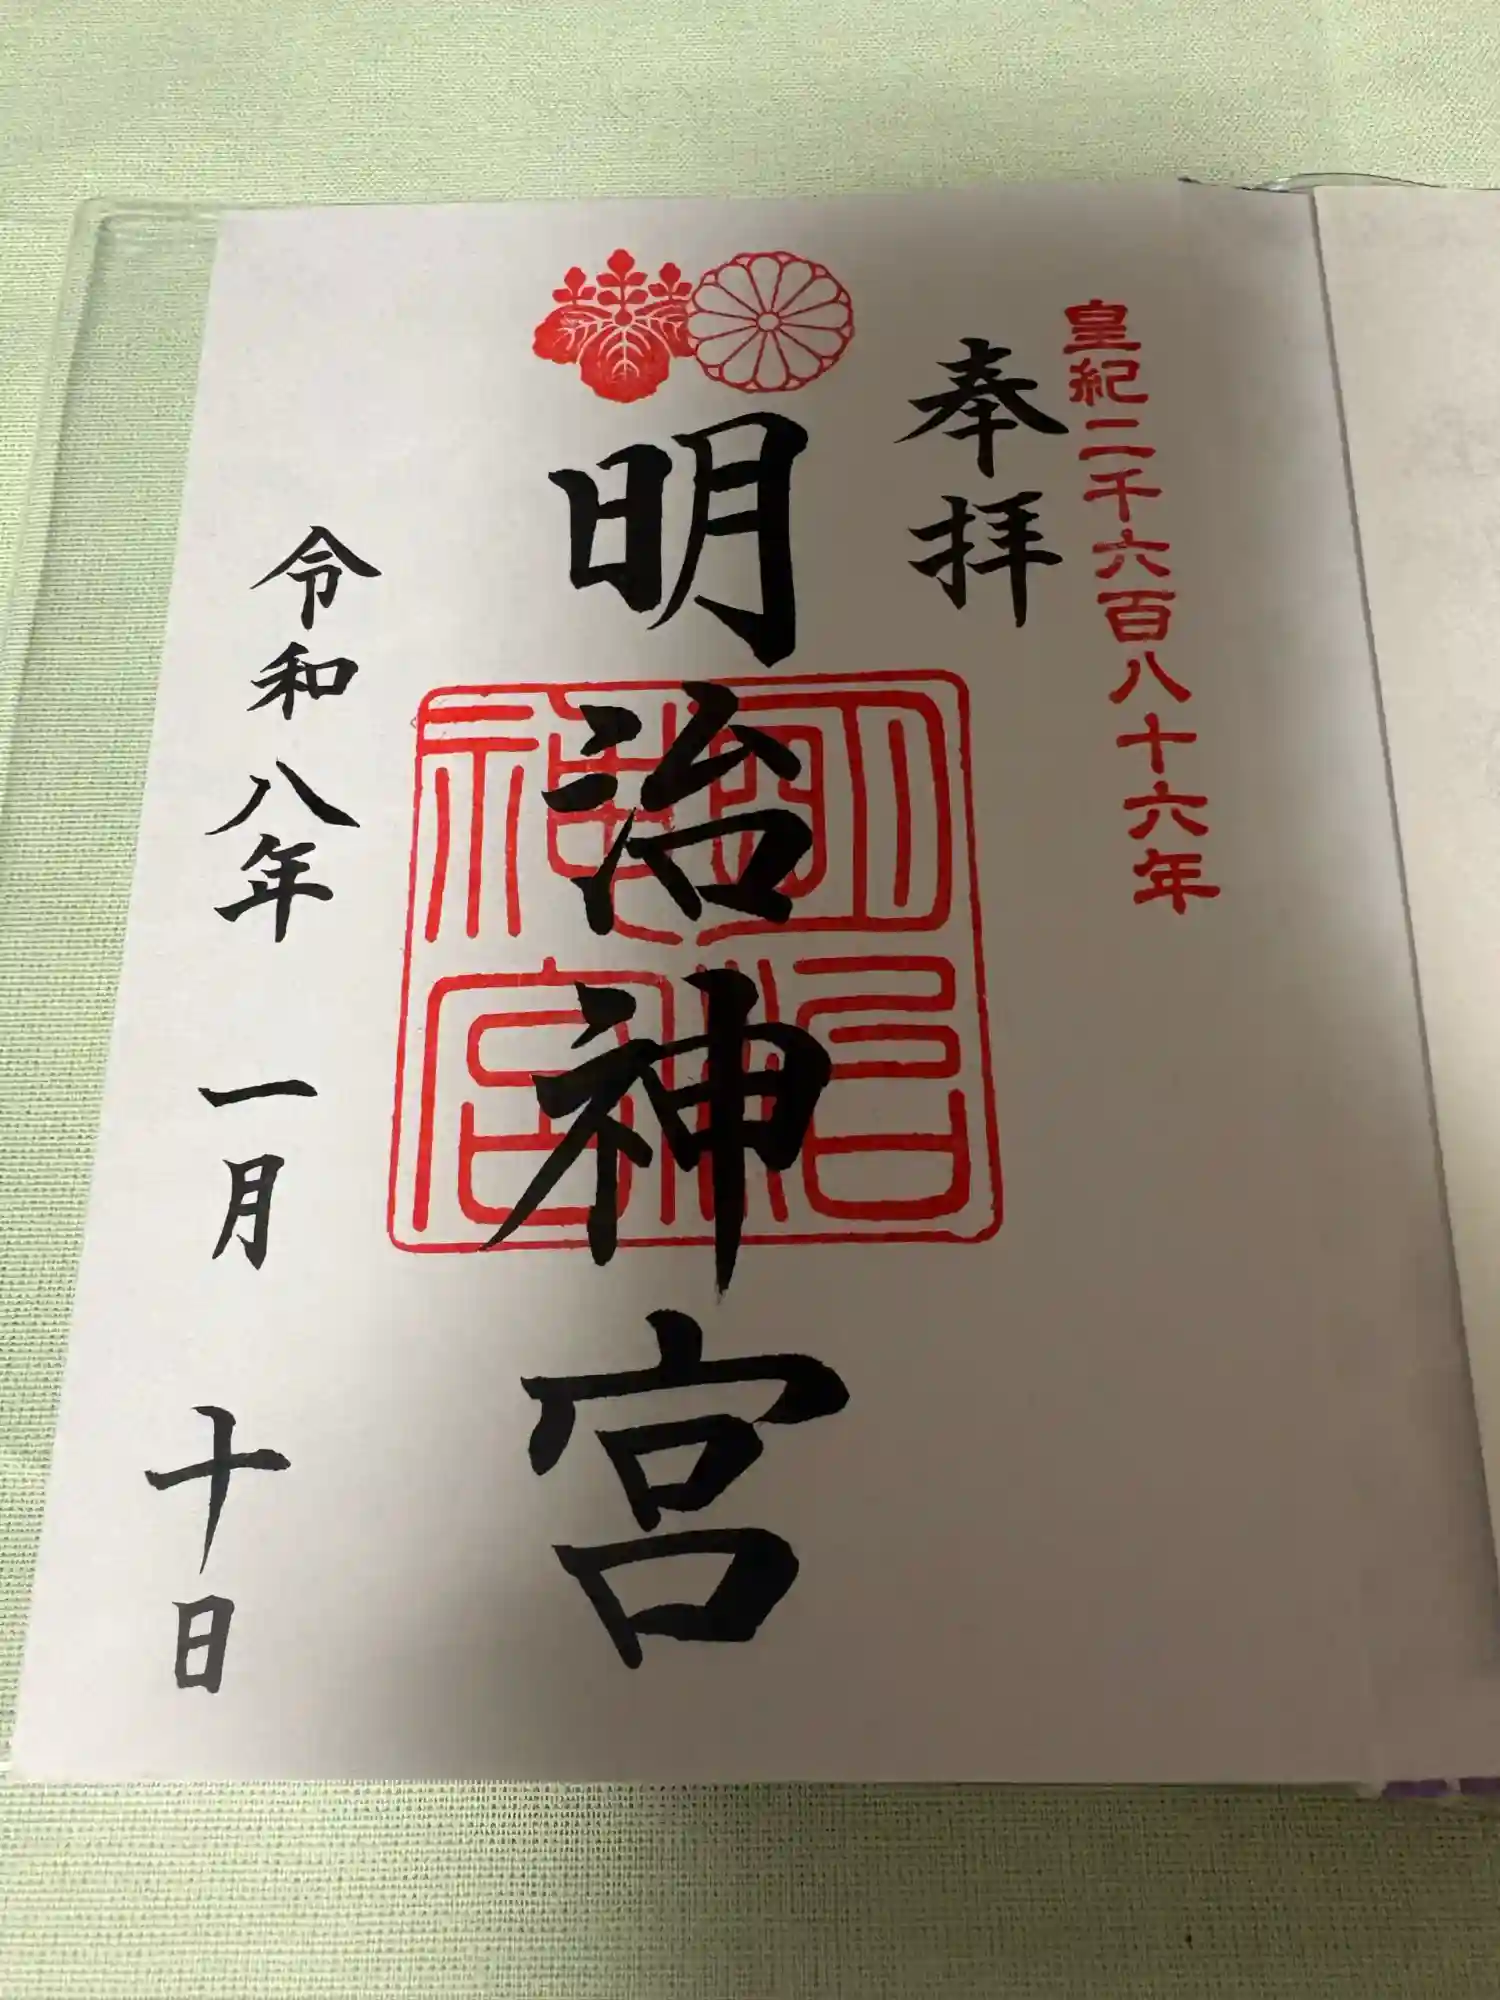 皇紀二千六百八十六年
奉拝
明治神宮
明治神宮
令和八年 一月 十日